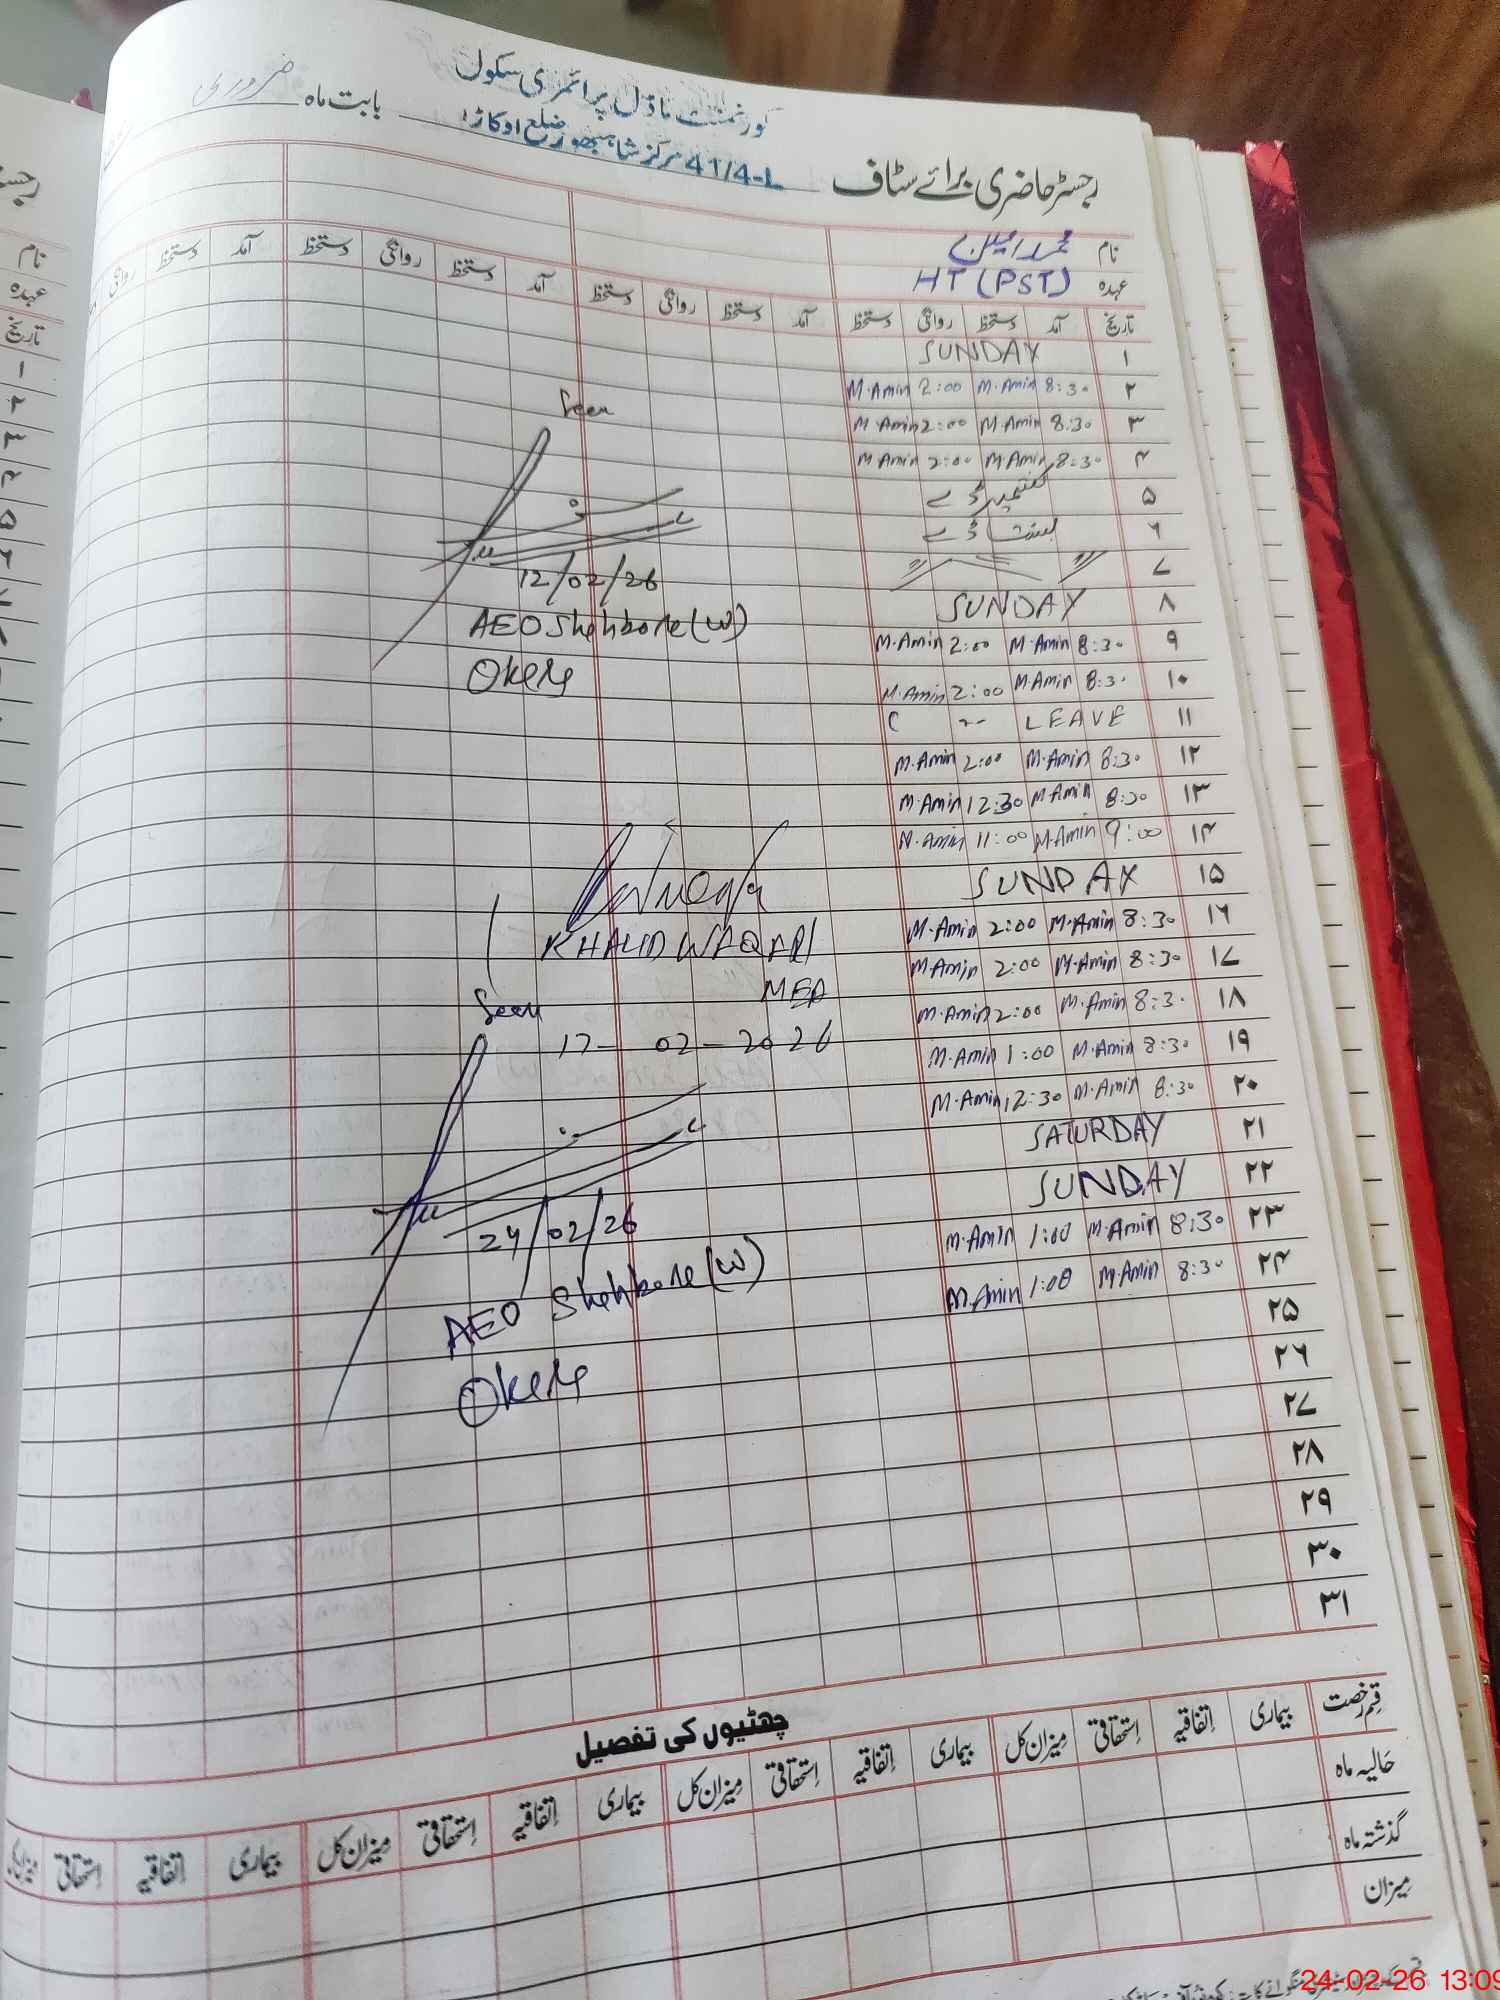 گورنمنٹ ماڈل پرائمری سکول
41/4-L مرکز شاہبھور ضلع اوکاڑا
بابت ماہ فروری
رجسٹر حاضری برائے سٹاف
نام محمد امین
عہدہ HT (PST)
تاریخ آمد دستخط روانگی دستخط آمد دستخط روانگی دستخط آمد دستخط روانگی دستخط آمد دستخط روانگی
۱ SUNDAY
۲ 8:30 M.Amin 2:00 M.Amin
۳ 8:30 M.Amin 2:00 M.Amin
۴ 8:30 M.Amin 2:00 M.Amin
۵ کشمیر ڈے
۶ بسنت ڈے
۷ 〃 〃
۸ SUNDAY
۹ 8:30 M.Amin 2:00 M.Amin
۱۰ 8:30 M.Amin 2:00 M.Amin
۱۱ LEAVE
۱۲ 8:30 M.Amin 2:00 M.Amin
۱۳ 8:30 M.Amin 12:30 M.Amin
۱۴ 9:00 M.Amin 11:00 M.Amin
۱۵ SUNDAY
۱۶ 8:30 M.Amin 2:00 M.Amin
۱۷ 8:30 M.Amin 2:00 M.Amin
۱۸ 8:30 M.Amin 2:00 M.Amin
۱۹ 8:30 M.Amin 1:00 M.Amin
۲۰ 8:30 M.Amin 12:30 M.Amin
۲۱ SATURDAY
۲۲ SUNDAY
۲۳ 8:30 M.Amin 1:00 M.Amin
۲۴ 8:30 M.Amin 1:00 M.Amin
۲۵
۲۶
۲۷
۲۸
۲۹
۳۰
۳۱
Seen
12/02/26
AEO Shahbore (W)
Okara
KHALID WAQAR
MEA
17-02-2026
Seen
24/02/26
AEO Shahbore (W)
Okara
چھٹیوں کی تفصیل
قسم رخصت بیماری اتفاقیہ استحقاقی میزان کل بیماری اتفاقیہ استحقاقی میزان کل بیماری اتفاقیہ استحقاقی میزان کل بیماری اتفاقیہ استحقاقی
حالیہ ماہ
گذشتہ ماہ
میزان
نام
عہدہ
تاریخ
۱
۲
۳
۴
۵
۶
24-02-26 13:09